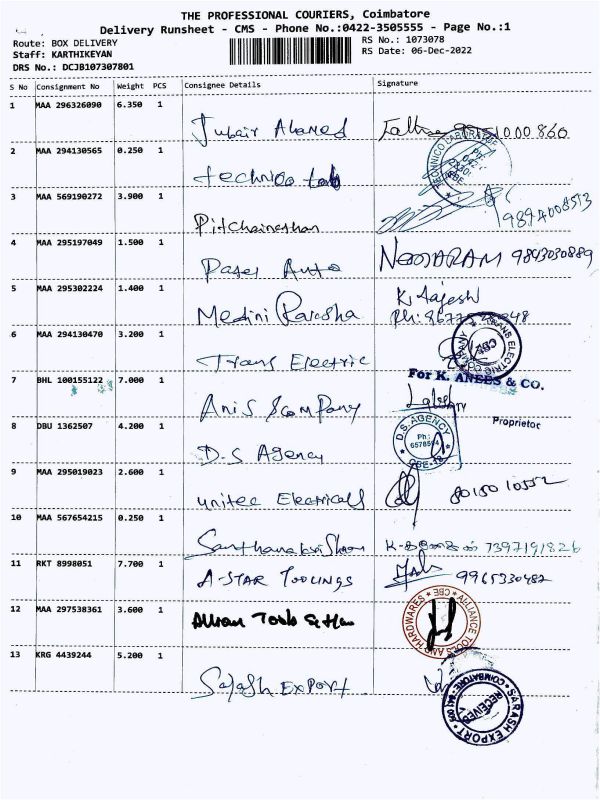 THE PROFESSIONAL COURIERS, Coimbatore
Delivery Runsheet - CMS - Phone No.:0422-3505555 - Page No.:1
Route: BOX DELIVERY RS No.: 1073078
Staff: KARTHIKEYAN RS Date: 06-Dec-2022
DRS No.: DCJB107307801
S No Consignment No Weight PCS Consignee Details Signature
1 MAA 296326090 6.350 1
Jubair Ahamed
2 MAA 294130565 0.250 1
technico lab
3 MAA 569190272 3.900 1
Pitchaineathan 9894008513
4 MAA 295197049 1.500 1
Patel Auto NEMARAM 9843030889
5 MAA 295302224 1.400 1
Medini Raksha K. Rajesh
6 MAA 294130470 3.200 1
Trans Electric
For K. ANEES & CO.
7 BHL 100155122 7.000 1
Anis & Company
Proprietor
8 DBU 1362507 4.200 1
D.S Agency
D.S. AGENCY
Ph:
CBE-18
9 MAA 295019023 2.600 1
united Electricals 8015010552
10 MAA 567654215 0.250 1
Santhanakrishnan 7397191826
11 RKT 8998051 7.700 1
A-STAR TOOLINGS 9965330482
12 MAA 297538361 3.600 1
ALLIANCE TOOLS AND HARDWARES * CBE *
13 KRG 4439244 5.200 1
Sarash Export
SARASH EXPORT
RECEIVED